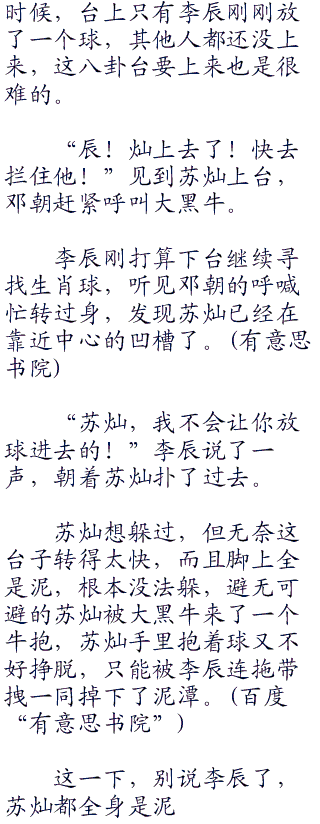 时候，台上只有李辰刚刚放
了一个球，其他人都还没上
来，这八卦台要上来也是很
难的。
“辰！灿上去了！快去
拦住他！”见到苏灿上台，
邓朝赶紧呼叫大黑牛。
李辰刚打算下台继续寻
找生肖球，听见邓朝的呼喊
忙转过身，发现苏灿已经在
靠近中心的凹槽了。(有意思
书院)
“苏灿，我不会让你放
球进去的！”李辰说了一
声，朝着苏灿扑了过去。
苏灿想躲过，但无奈这
台子转得太快，而且脚上全
是泥，根本没法躲，避无可
避的苏灿被大黑牛来了一个
牛抱，苏灿手里抱着球又不
好挣脱，只能被李辰连拖带
拽一同掉下了泥潭。(百度
“有意思书院”)
这一下，别说李辰了，
苏灿都全身是泥